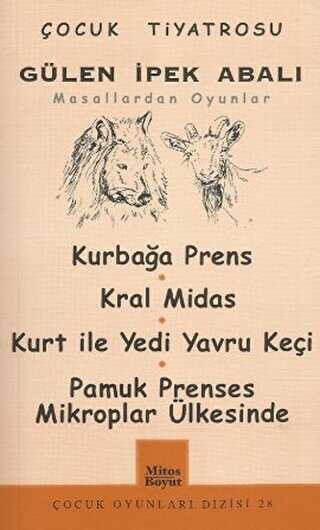 ÇOCUK TİYATROSU
GÜLEN İPEK ABALI
Masallardan Oyunlar
Kurbağa Prens
Kral Midas
Kurt ile Yedi Yavru Keçi
Pamuk Prenses
Mikroplar Ülkesinde
Mitos
Boyut
ÇOCUK OYUNLARI DİZİSİ 28